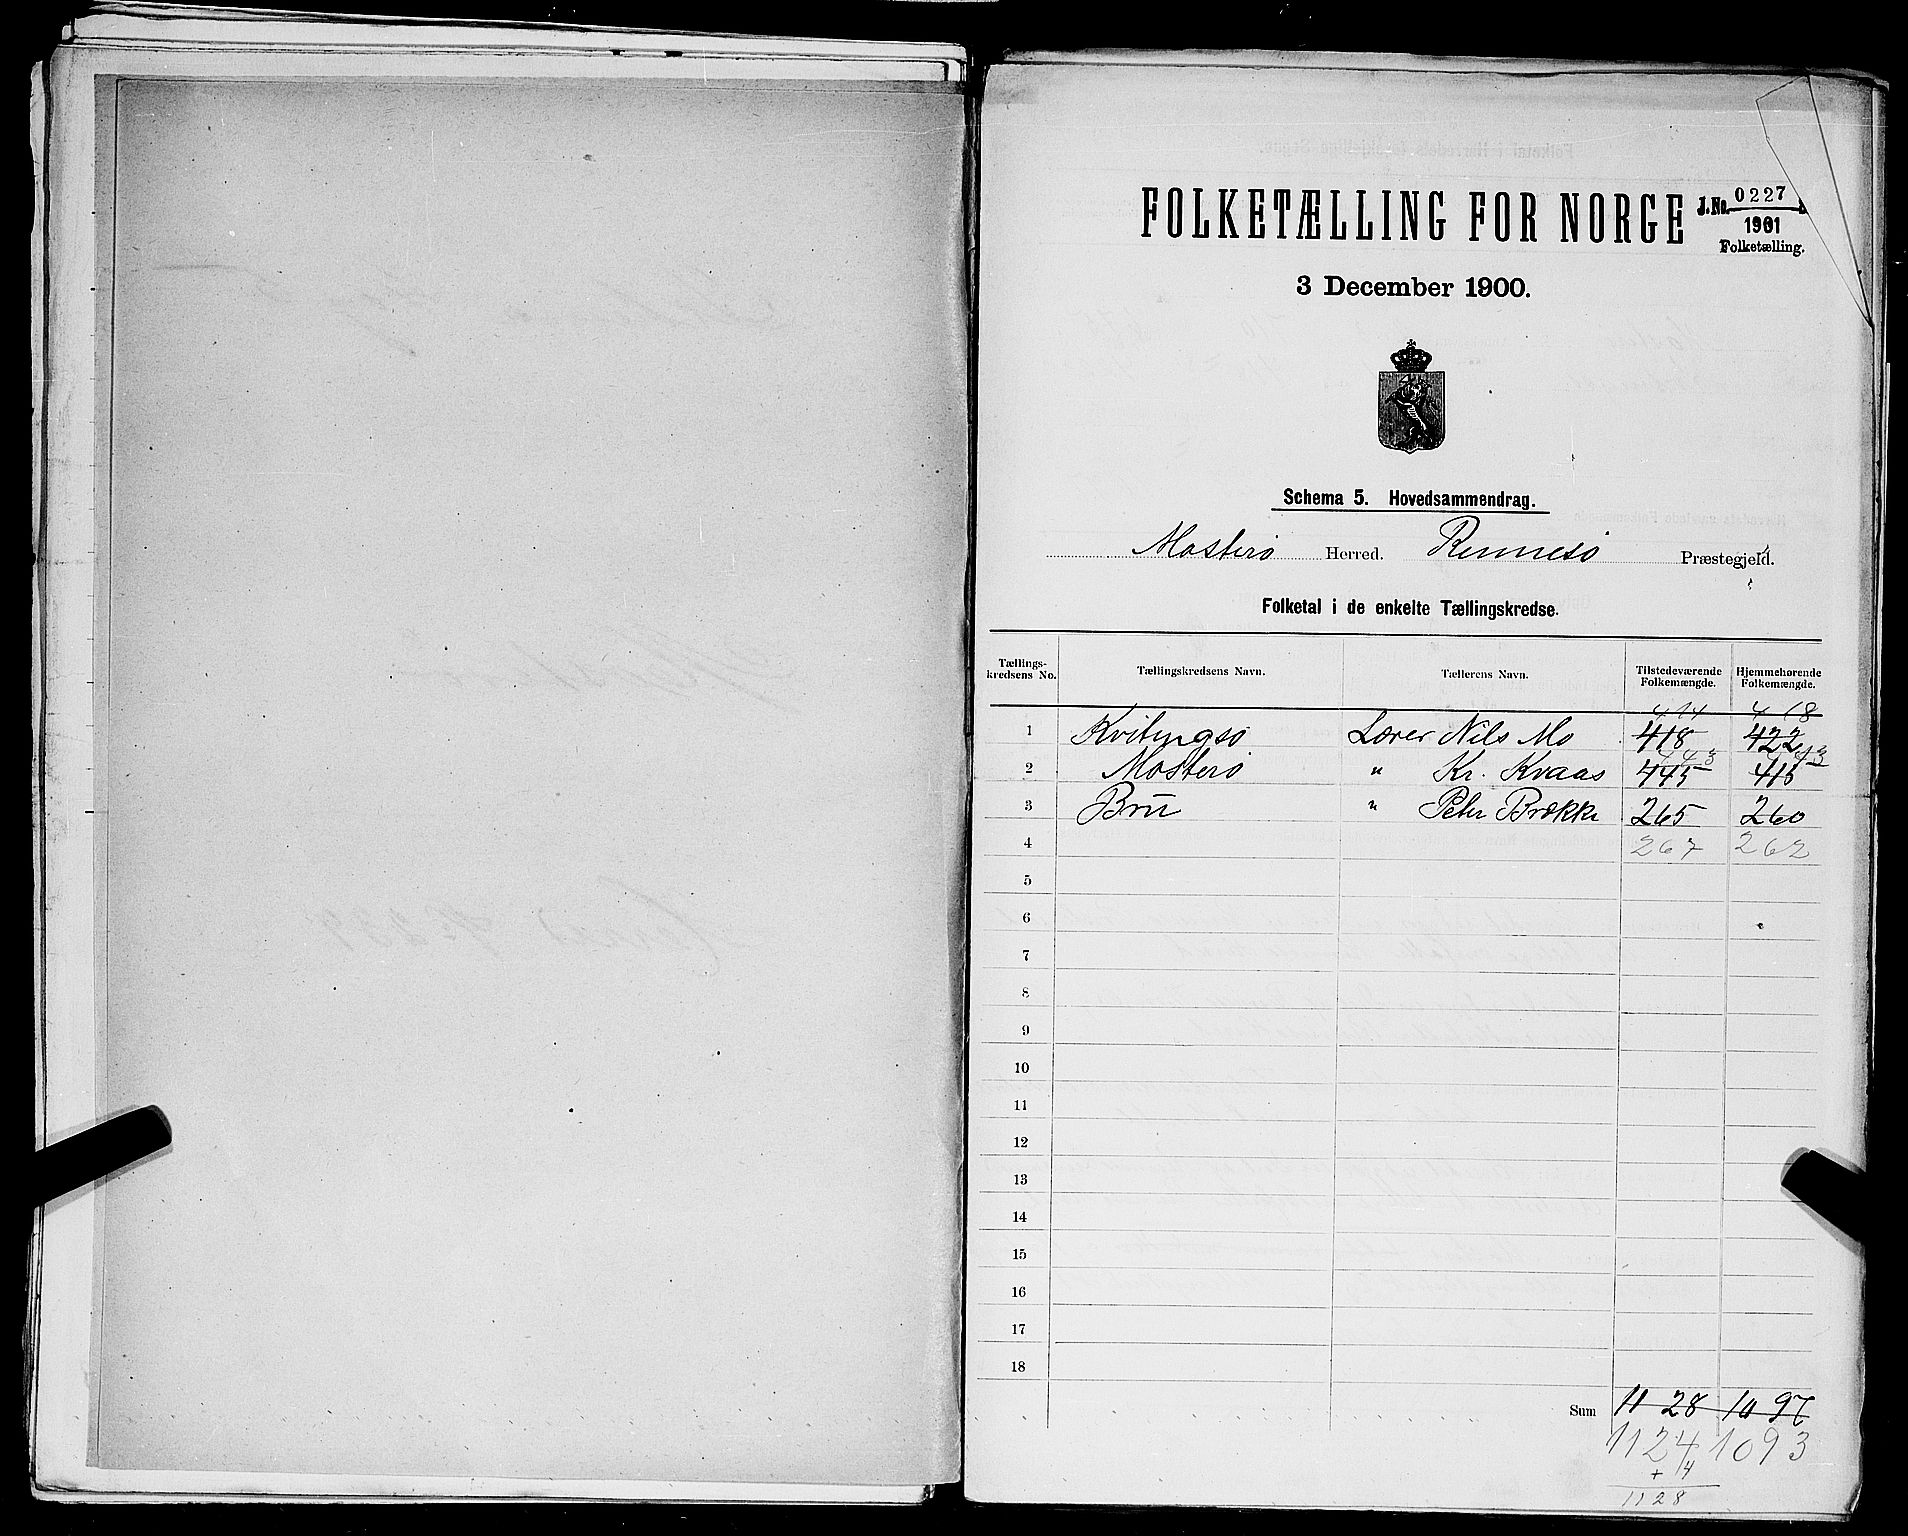 FOLKETÆLLING FOR NORGE
J.No. 0227
1901
Folketælling.
3 December 1900.
Schema 5. Hovedsammendrag.
Mosterø Herred. Rennesø Præstegjeld.
Folketal i de enkelte Tællingskredse.
Tællingskredsens No. Tællingskredsens Navn. Tællerens Navn. Tilstedeværende Folkemængde. Hjemmehørende Folkemængde.
414 418
1 Kvitingsø Lærer Nils Mo 418 422
443 413
2 Mosterø " Kr. Kvaas 445 415
3 Bru " Peter Brække 265 260
4 267 262
5
6
7
8
9
10
11
12
13
14
15
16
17
18
Sum 1128 1097
1124 1093
+ 4
1128